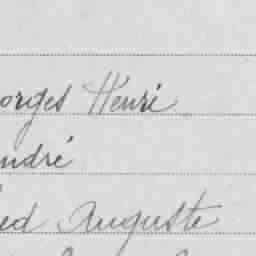 orges Henri
ndré
ed Auguste